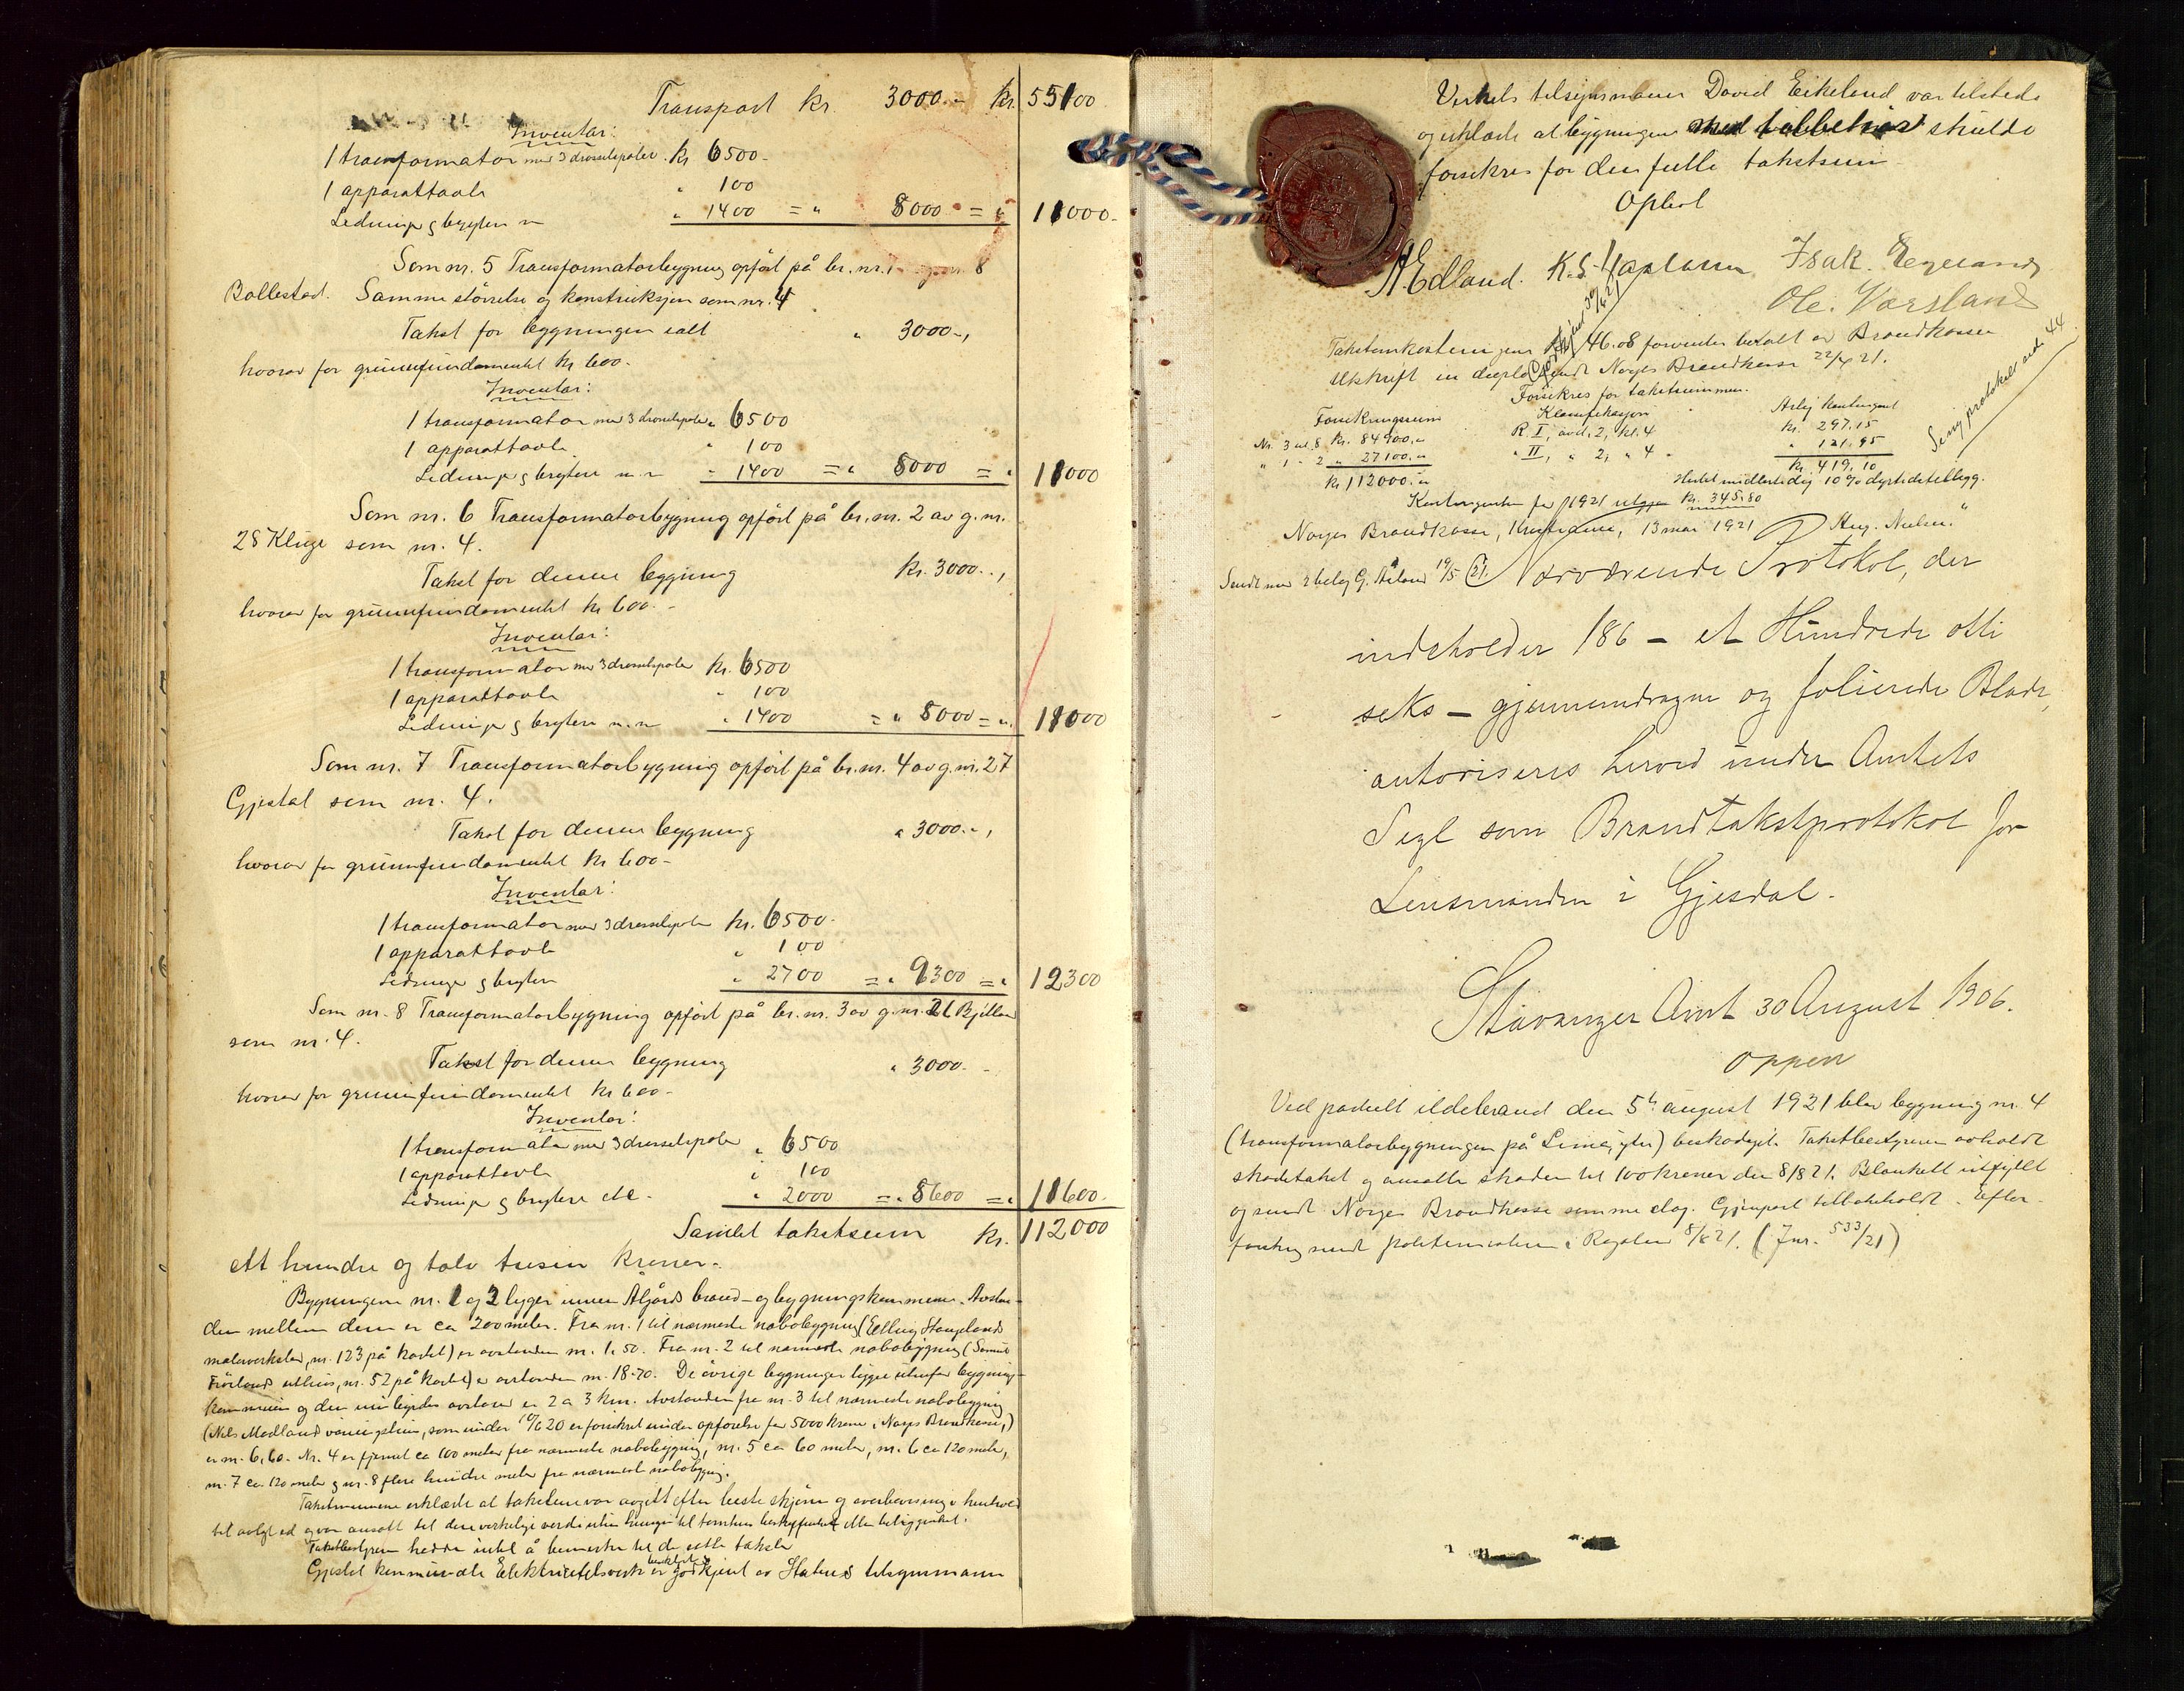 Transport kr. 3000.- kr. 55100
Inventar:
1 transformator med 3 drosselspoler kr 6500.-
1 apparattavle " 100
Ledninger og brytere m " 1400 = " 8000 = " 11000.-
Som nr. 5 Transformatorbygning opført på br. nr. 1 g. nr. 8
Bollestad. Samme størrelse og konstruksjon som nr. 4
Takst for bygningen ialt " 3000.-,
hvorav for grunnfundamentet kr 600.-
Inventar:
1 transformator med 3 drosselspoler " 6500
1 apparattavle " 100
Ledninger og brytere m. m " 1400 = " 8000 = " 11000
Som nr. 6 Transformatorbygning opført på br. nr. 2 av g. nr.
28 Kluge som nr. 4.
Takst for denne bygning kr. 3000.-,
hvorav for grunnfundamentet kr 600.-
Inventar:
1 transformator med 3 drosselspoler kr. 6500
1 apparattavle " 100
Ledninger og brytere m. m " 1400 = " 8000 = " 11000
Som nr. 7 Transformatorbygning opført på br. nr. 4 av g. nr. 27
Gjestal som nr. 4.
Takst for denne bygning " 3000.-,
hvorav for grunnfundamentet kr 600.-
Inventar:
1 transformator med 3 drosselspoler kr. 6500.-
1 apparattavle " 100
Ledninger og brytere " 2700 = " 9300 = " 12300
Som nr. 8 Transformatorbygning opført på br. nr. 3 av g. nr. 21
som nr. 4.
Takst for denne bygning " 3000.-
hvorav for grunnfundamentet kr 600.-
Inventar:
1 transformator med 3 drosselspoler " 6500
1 apparattavle " 100
Ledninger og brytere etc. " 2000 = " 8600 = " 11600.
Samlet takstsum kr. 112000
ett hundre og tolv tusin kroner.
Bygningene nr. 1 og 2 ligger innen Ålgårds brand- og bygningskommune. Avstan-
den mellem dem er ca 200 meter. Fra nr. 1 til nærmeste nabobygning (Elling Staupland's
malerverksted, nr. 123 på kartet) er avstanden m. 1.50. Fra nr. 2 til nærmeste nabobygning (
uthus, nr. 52 på kartet) er avstanden m. 18.70. De øvrige bygninger ligger utenfor bygnings-
kommunen og den innbyrdes avstand er 2 a 3 km. Avstanden fra nr. 3 til nærmeste nabobygning
(Nils Modland våningshus, som under 10/6 20 er forsikret under opførelse for 5000 kroner i Norges Brandkasse,)
er m. 6.60. Nr. 4 er fjernet ca 100 meter fra nærmeste nabobygning, nr. 5 ca 60 meter, nr. 6 ca 120 meter,
nr. 7 ca 120 meter og nr. 8 flere hundre meter fra nærmeste nabobygning.
Takstmennene erklærte at takstene var avgitt efter beste skjønn og overbevisning i henhold
til avlagt ed og var ansatt til den virkelige verdi uten hensyn til tomtens beskaffenhet eller beliggenhet.
Takstbestyreren hadde intet å bemerke til de satte takster
Gjestal kommunale Elektricitetsverk er godkjent av Statens tilsynsmann
Verkets tilsynsmann David Eikeland var tilstede
og erklærte at bygningene med tilbehør skulde
forsikres for den fulle takstsum
Oplest
A Edland. K. S. Isak. Egeland
Ole. Varsland
Takstomkostningene kr 46.08 forventes betalt av Brandkassen
Utskrift in duplo sendt Norges Brandkasse 22/4 21.
Forsikres for takstsummen.
Forsikringssum Klassifikasjon Årlig kontingent
Nr. 3 til 8 kr. 84900.- R. I, avd. 2, kl. 4 kr. 297.15
" 1 - 2 " 27100.- " II, " 2, " 4 - " 121.95
kr. 112000.- kr. 419.10
Hertil midlertidig 10 % dyrtidstillegg.
Kontingenten for 1921 utgjør kr. 345.80
Norges Brandkasse, Kristiania, 13 mai 1921 Aug. Nielsen."
Se ny protokol side 44
Sendt med 2 belæg G. Åland 19/5 21.
Nærværende Protokol, der
indeholder 186 – et Hundrede otti
seks – gjennemdragne og folierede Blade,
autoriseres herved under Amtets
Segl som Brandtakstprotokol for
Lensmanden i Gjesdal.
Stavanger Amt 30 August 1906.
Oppen
Ved påstået ildebrand den 5te august 1921 blev bygning nr. 4
(transformatorbygningen på Lima, ytre) beskadiget. Takstbestyreren avholdt
skadetakst og ansatte skaden til 100 kroner den 8/8 21. Blankett utfyllt
og sendt Norges Brandkasse samme dag. Gjenpart tilbakeholdt. Efter-
forskning sendt politimesteren i Rogaland 8/8 21. (Jnr. 533/21)